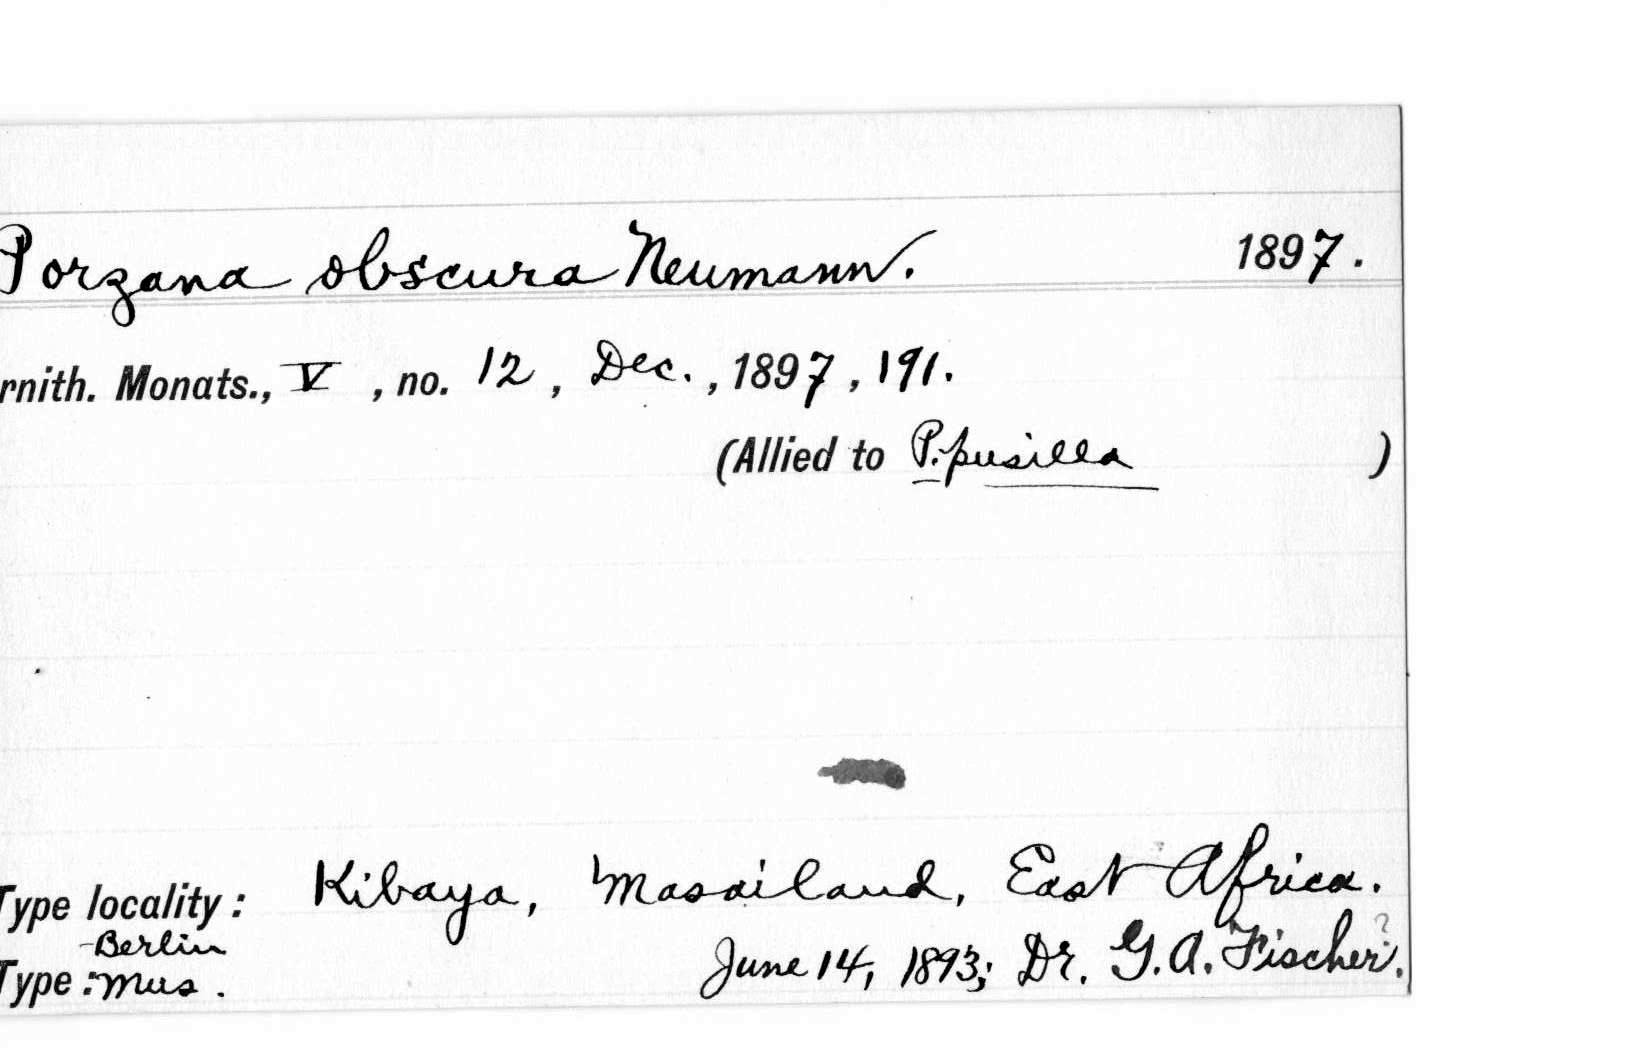 Porzana obscura Neumann. 1897.
rnith. Monats., V, no. 12, Dec., 1897, 191.
(Allied to P. pusilla )
Type locality: Kibaya, Masailand, East Africa.
Berlin ?
Type: Mus. June 14, 1893; Dr. G. A. Fischer.